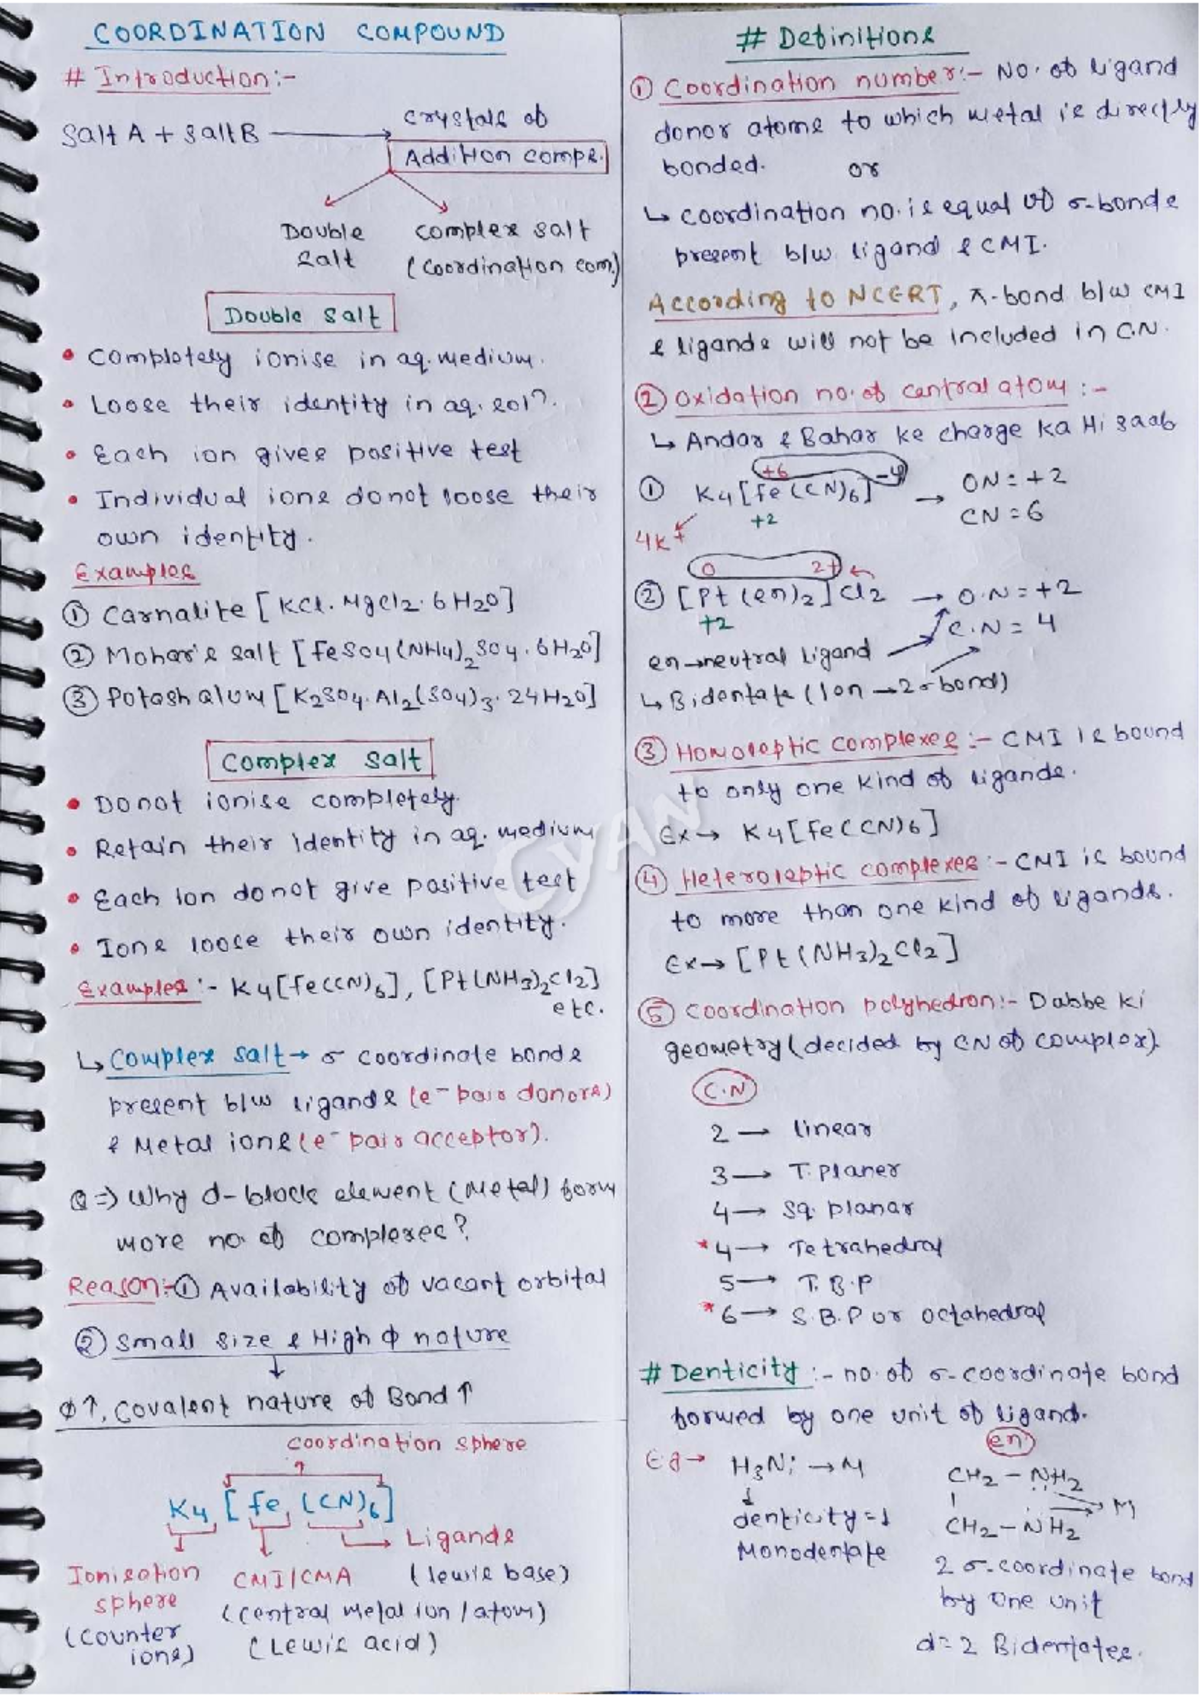 COORDINATION COMPOUND
# Introduction:-
Salt A + Salt B ⟶ crystals of
Addition comps.
Double
salt
complex salt
(coordination com.)
Double salt
• Completely ionise in aq. medium.
• Loose their identity in aq. solⁿ.
• Each ion gives positive test
• Individual ions donot loose their
own identity.
Examples
① Carnalite [KCl. MgCl2. 6H2O]
② Mohar's salt [FeSO4(NH4)2SO4. 6H2O]
③ Potash alum [K2SO4. Al2(SO4)3. 24H2O]
Complex salt
• Donot ionise completely.
• Retain their identity in aq. medium
• Each ion donot give positive test
• Ions loose their own identity.
Examples:- K4[Fe(CN)6], [Pt(NH3)2Cl2]
etc.
↳ Complex salt → σ coordinate bonds
present b/w ligands (e⁻ pair donors)
& Metal ions (e⁻ pair acceptor).
Q ⇒ Why d-block element (Metal) form
more no. of complexes?
Reason:- ① Availability of vacant orbital
② Small size & High ϕ nature
↓
ϕ↑, Covalent nature of Bond ↑
coordination sphere
K4 [Fe (CN)6]
Ligands
(lewis base)
Ionisation
sphere
(counter
ions)
CMI/CMA
(central metal ion / atom)
(Lewis acid)
# Definitions
① Coordination number:- No. of ligand
donor atoms to which metal is directly
bonded. or
↳ coordination no. is equal of σ-bonds
present b/w ligand & CMI.
According to NCERT, π-bond b/w CMI
& ligands will not be included in C.N.
② Oxidation no. of central atom:-
↳ Andar & Bahar ke charge ka Hisaab
+6 -4
① K4[Fe(CN)6] → ON = +2
CN = 6
+2
4K+
0 2+ ←
② [Pt(en)2]Cl2 → O.N = +2
+2
C.N = 4
en → neutral ligand
↳ Bidentate (1en → 2σ-bond)
③ Homoleptic complexes:- CMI is bound
to only one kind of ligands.
Ex → K4[Fe(CN)6]
④ Heteroleptic complexes:- CMI is bound
to more than one kind of ligands.
Ex → [Pt(NH3)2Cl2]
⑤ Coordination polyhedron:- Dabbe ki
geometry (decided by CN of complex).
C.N
2 → linear
3 → T. planer
4 → Sq. planar
*4 → Tetrahedral
5 → T.B.P
*6 → S.B.P or octahedral
# Denticity:- no. of σ-coordinate bond
formed by one unit of ligand.
Eg → H3N: → M
↓
denticity = 1
Monodentate
en
CH2 - NH2
| → M
CH2 - NH2
2 σ-coordinate bond
by one unit
d = 2 Bidentates.
CYAN